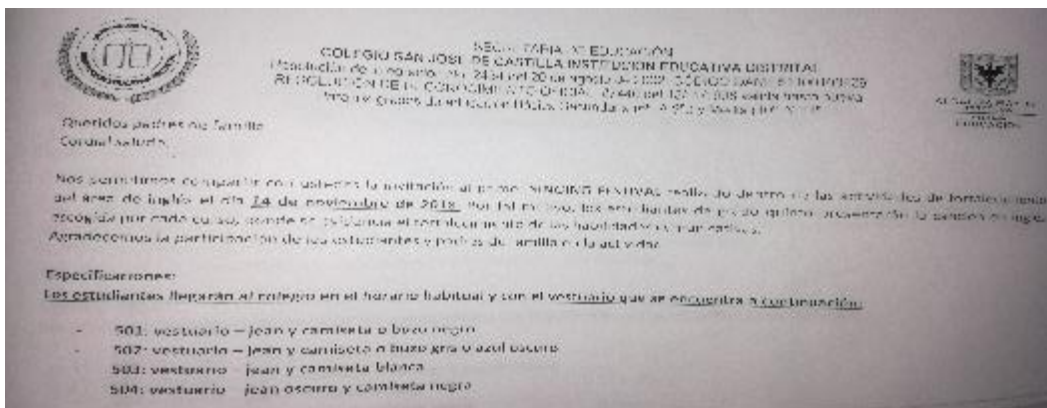 SECRETARIA DE EDUCACIÓN
COLEGIO SAN JOSE DE CASTILLA INSTITUCION EDUCATIVA DISTRITAL
Queridos padres de familia
Cordial saludo,
Nos permitimos compartir con ustedes la invitación al primer SINGING FESTIVAL realizado dentro de las actividades de fortalecimiento
del área de inglés el día 14 de noviembre de 2018. Por tal motivo, los estudiantes de grado quinto presentarán la canción en inglés
escogida por cada curso, donde se evidencia el fortalecimiento de las habilidades comunicativas.
Agradecemos la participación de los estudiantes y padres de familia en la actividad.
Especificaciones:
Los estudiantes llegarán al colegio en el horario habitual y con el vestuario que se encuentra a continuación:
- 501: vestuario – jean y camiseta o buzo negro
- 502: vestuario – jean y camiseta o buzo gris o azul oscuro
- 503: vestuario – jean y camiseta blanca
- 504: vestuario – jean oscuro y camiseta negra